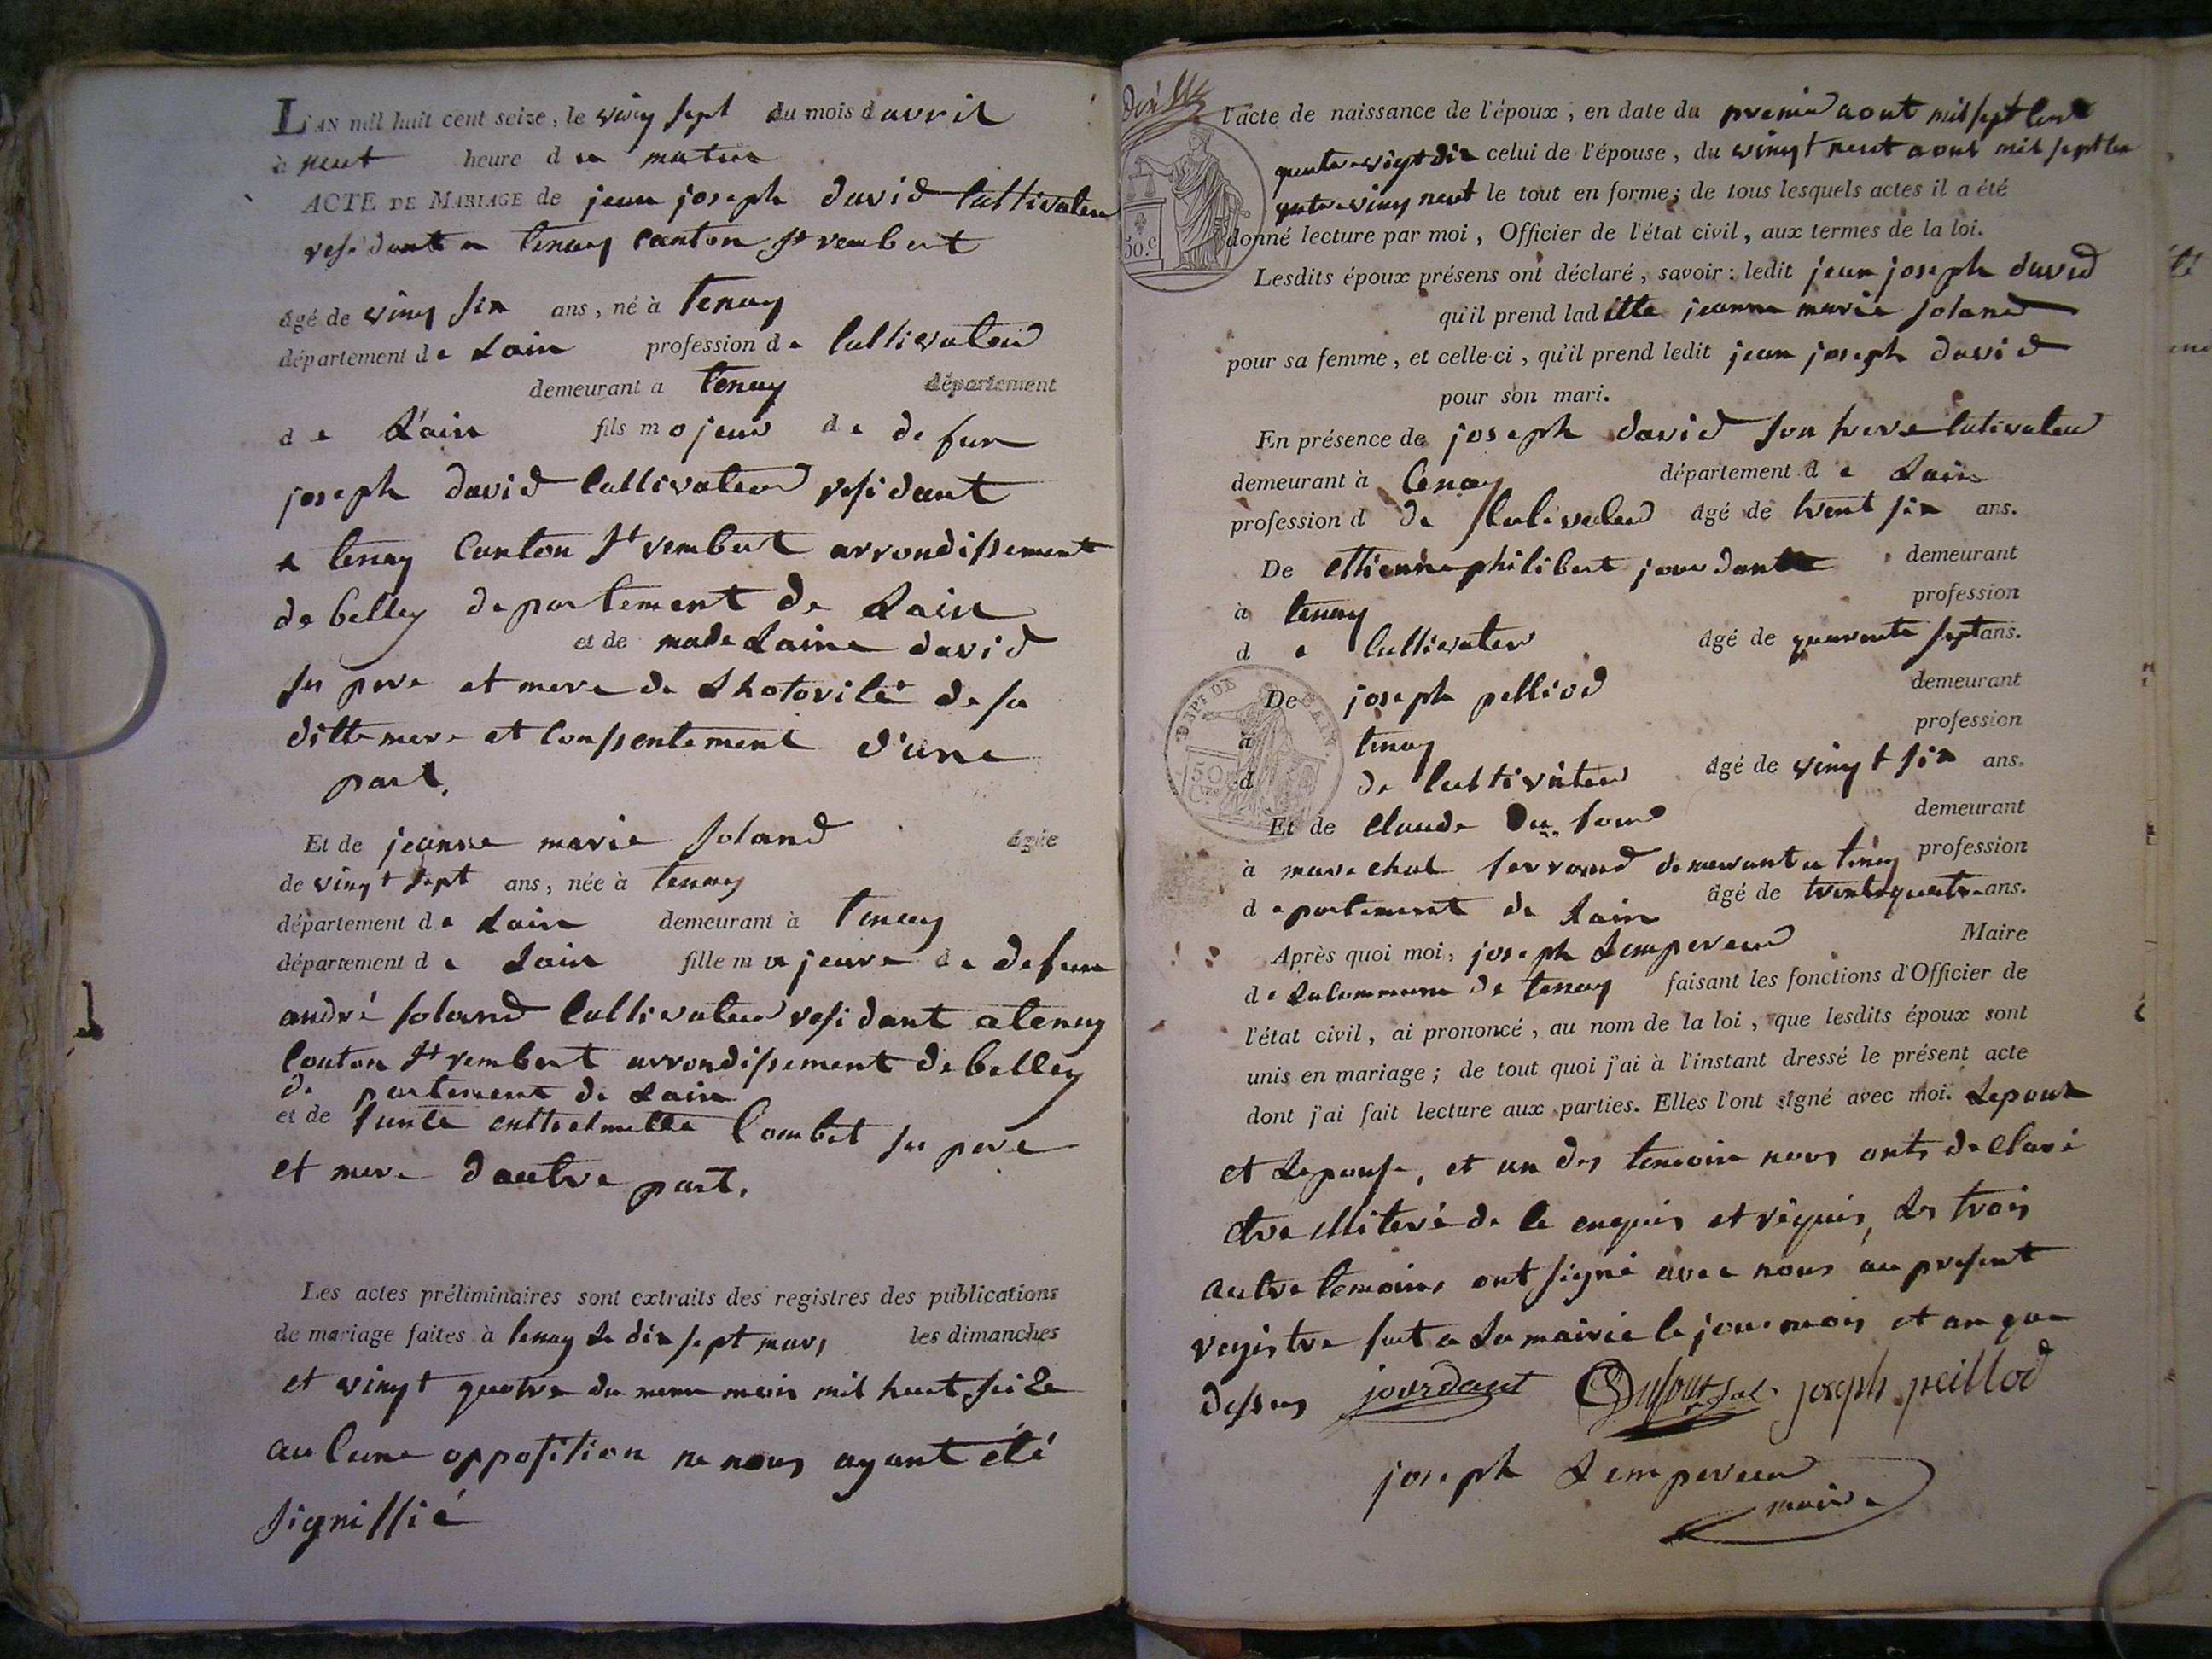 L'AN mil huit cent seize, le vingt sept du mois d avril
à neut heure d u matin
ACTE DE MARIAGE de jean joseph david cultivateur
residant a tenay canton st rembert
âgé de vingt six ans, né à tenay
département d e Lain profession d e cultivateur
demeurant a tenay département
d e L'ain fils m ajeur d e defun
joseph david cultivateur residant
a tenay canton st rembert arrondissement
de belley departement de Lain
et de madeLaine david
ses pere et mere de Lhotorité de sa
ditte mere et conssentement d'une
part.
Et de jeanne marie soland âgée
de vingt sept ans, née à tenay
département d e Lain demeurant à tenay
département d e Lain fille m ajeure d e defun
andré soland cultivateur residant a tenay
canton st rembert arrondissement de belley
de partement de Lain
et de Combet ses pere
et mere dautre part.
Les actes préliminaires sont extraits des registres des publications
de mariage faites à tenay Le dix sept mars les dimanches
et vingt quatre du meme mois mil huit seize
aucune opposition ne nous ayant été
signiffié
l'acte de naissance de l'époux, en date du premier aout mil sept cent
quatre vigt dix celui de l'épouse, du vingt neut aout mil sept cen
quatre vingt neut le tout en forme; de tous lesquels actes il a été
donné lecture par moi, Officier de l'état civil, aux termes de la loi.
50.c
Lesdits époux présens ont déclaré, savoir: ledit jean joseph david
qu'il prend lad itte jeanne marie soland
pour sa femme, et celle-ci, qu'il prend ledit jean joseph david
pour son mari.
En présence de joseph david son frere cutivateur
demeurant à tenay département d e Lain
profession d de âgé de trent six ans.
De ettienne philibert jourdant demeurant
à tenay profession
d e cultivateur âgé de quarante sept ans.
De joseph pelliod demeurant
à tenay profession
d de cultivateur âgé de vingt six ans.
DEPT DE L'AIN
50
Et de claude du four demeurant
à marechal ferrand demeurant a tenay profession
d epartement de Lain âgé de trente quatre ans.
Après quoi moi, joseph Lempereur Maire
d e La commune de tenay faisant les fonctions d'Officier de
l'état civil, ai prononcé, au nom de la loi, que lesdits époux sont
unis en mariage; de tout quoi j'ai à l'instant dressé le présent acte
dont j'ai fait lecture aux parties. Elles l'ont signé avec moi. Lepoux
et Lepouse, et un des temoin nous onts declaré
etre illiteré de ce enquis et réquis, Les trois
autre temoins ont signé avec nous au present
registre fait a La mairie le jour mois et an que
dessus jourdant Dufour joseph peillod
joseph Lempereur
maire